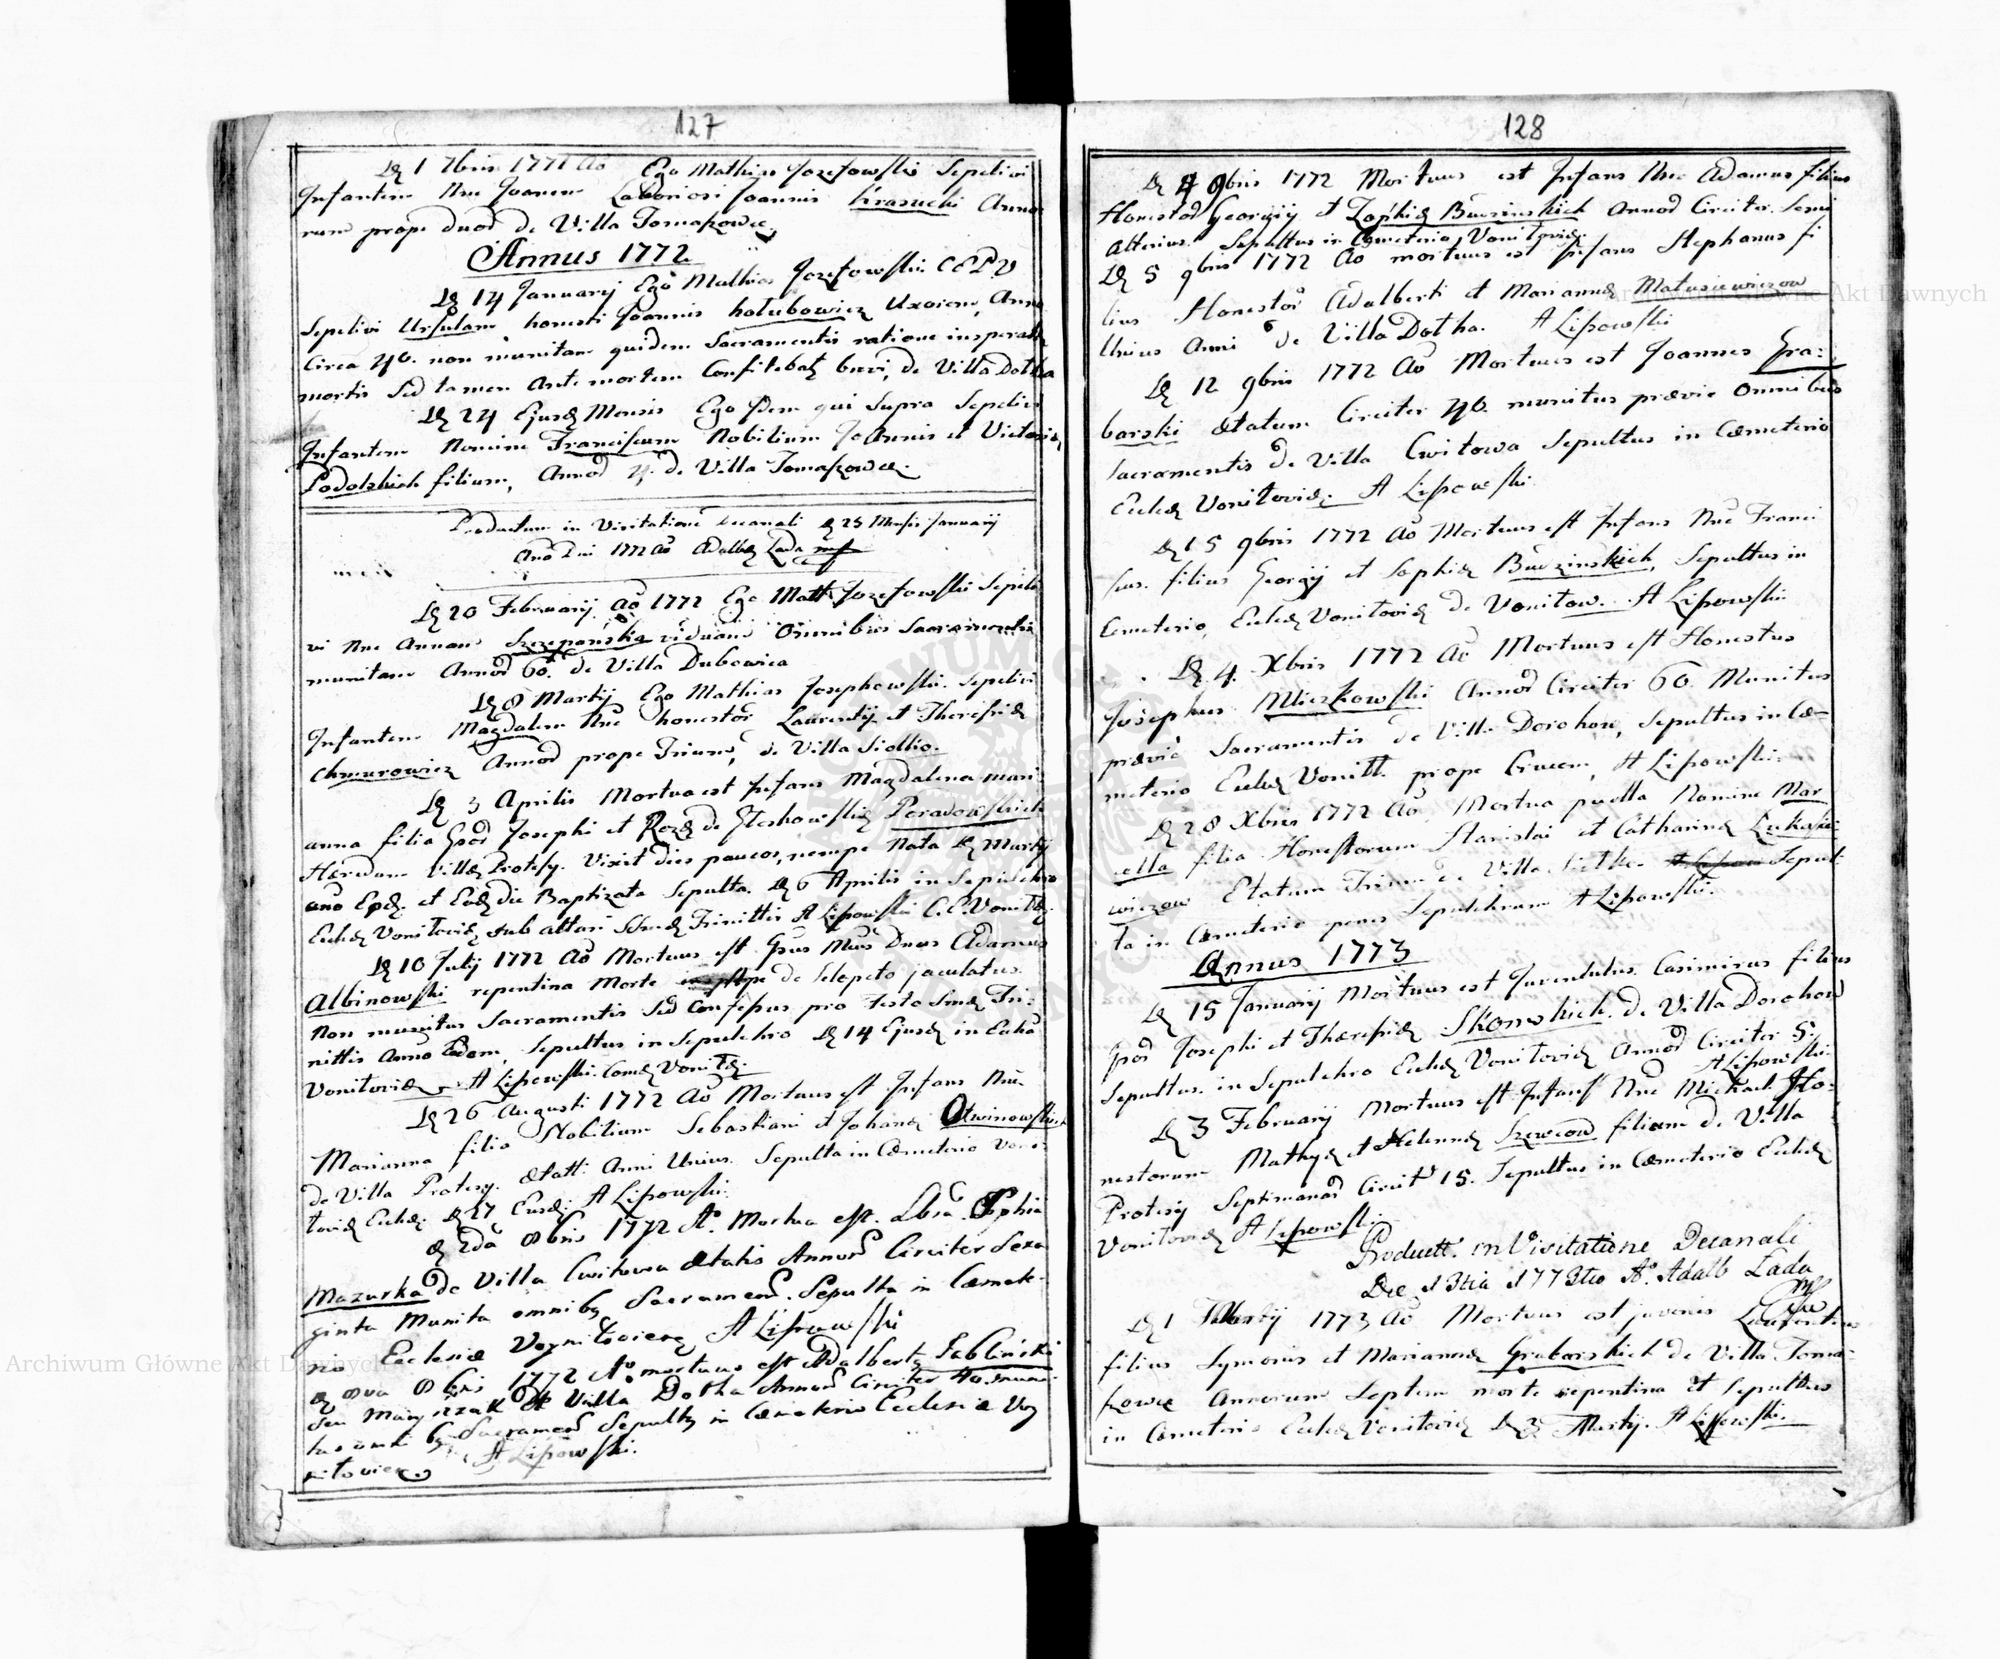 127
D 1 7bris 1771 Ao Ego Mathias Jozefowski Sepelivi
Infantem Nne Joanem Laboriosi Joannis Krasucki Anno
rum prope duor de Villa Tomaszowce.
Annus 1772
D 14 January Ego Mathias Jozefowski C E P V
Sepelivi Ursulam honesti Joannis hołubowicz Uxorem, Anno
Circa 40. non munitam quidem Sacramentis ratione insperatæ
mortis sed tamen Ante mortem Confitebat brevi, de Villa Dołha
D 24 Ejusd Mensis Ego Idem qui Supra Sepelivi
Infantem Nomine Franciscum Nobilium Joannis et Victoriæ
Podolskich filium, Annor 4. de Villa Tomaszowce.
Productum in Visitatione Decanali D 25 Mensis January
Ano Dni 1772 Ao Adalb Lada mp
D 20 February Ao 1772 Ego Math Jozefowski Sepeli
vi Nne Annam Szczepańska viduam Omnibus Sacramentis
munitam Annor 60. de Villa Dubowica
D 8 Martij Ego Mathias Josephowski Sepelivi
Infantem Magdalem Nne honestor Laurentij et Theresiæ
Chmurowicz Annor prope Trium, de Villa Siołko.
D 3 Aprilis Mortua est Infans Magdalena mari
anna filia Gsor Josephi et Rozæ de Głeskowskie Peradowskich
Hæredum Villæ Protesy. Vixit dies paucos, nempe Nata D Martij
Ano Eod. et Ead die Baptizata Sepulta. D 6 Aprilis in Sepulchro
Eccle Vonitoviæ sub altari SSmæ Trinittis A Lipowski C. E. Vonitt.
D 10 July 1772 Ao Mortuus est Gsus Mcus Dnus Adamus
Albinowski repentina Morte de Selopeto jaculatus
Non munitus Sacramentis Sed Confessus pro festo Smæ Tri-
nittis Anno Eodem, Sepultus in Sepulchro D 14 Ejusd in Eccla
Vonitoviæ A Lipowski. Com Vonitt.
D 26 Augusti 1772 Ao Mortuus est Infans Nne
Marianna filia Nobilium Sebastiani et Johanæ Otwinowskich
de Villa Protesy. Ætatt: Anni Unius. Sepulta in Cæmeterio Voni
toviæ Eccle D 27 Eusd. A Lipowski.
D 2da 8bris 1772 Ao. Mortua est. Lbsa. Sophia
Mazurka de Villa Cwitowa Ætatis Annor Circiter Sexa
ginta Munita omnibq Sacramen. Sepulta in Cæmete-
rio Ecclesiæ Voyniłoviens A Lipowski
D 8va 8bris 1772 Ao. mortuus est Adalbertq Jabłoński
seu Marysz de Villa Dołha Annor Circiter 40. muni
tus omni bq Sacramen Sepultq in Cæmeterio Ecclesiæ Voy
niłoviens A Lipowski.
128
D 4 9bris 1772 Mortuus est Infans Nne Adamus filius
Honestor Georgij et Zophiæ Buczinskich Annor Circiter. Semi
Alterius. Sepultus in Cæmeterio Vonitoviæ.
D 5 9bris 1772 Ao mortuus est Infans Stephanus fi
lius Honestor Adalberti et Mariannæ Matusiewiczow
Unius Anni de Villa Dołha. A Lipowski
D 12 9bris 1772 Ao Mortuus est Joannes Gra:
barski Ætatum Circiter 40. munitus prævie Omnibus
Sacramentis de Villa Cwitowa Sepultus in Cæmeterio
Eccle Vonitoviæ. A Lipowski
D 15 9bris 1772 Ao Mortuus est Infans Nne Franci
scus. filius Georgij et Sophiæ Buczinskich, Sepultus in
Cemeterio, Eccle Vonitoviæ de Vonitow. A Lipowski
D 4. Xbris 1772 Ao Mortuus est Honestus
Josephus Mierzkowski Annor Circiter 60. Munitus
prævie Sacramentis de Villa Dorohow, Sepultus in Cæ-
meterio Eccle Vonitt. prope Crucem, A Lipowski.
D 28 Xbris 1772 Ao. Mortua puella Nomine Mar
cella filia Honestorum Stanislai et Catharinæ Łukasie
wiczow Etatum Trium de Villa Siołko Sepul
ta in Cæmeterio penes Sepulchrum A Lipowski.
Annus 1773
D 15 January Mortuus est Juvendulus. Casimirus filius
Gsor Josephi et Theresiæ Skowskich. de Villa Dorohow
Sepultus. in Sepulchro Eccle Vonitoviæ Annor Circiter 5.
A Lipowski.
D 3 February Mortuus est Infans Nne Michael Ho-
nestorum Mathyæ et Helennæ Szewcow filium de Villa
Protesy Septimanar Circit 15. Sepultus in Cæmeterio Eccle
Vonitoviæ A Lipowski.
Produtt. in Visitatione Decanali
Die 13tia 1773tio Ao. Adalb Lada
mp
D 1 Martij 1773 Ao Mortuus est juvenis Laurentius
filius Symonis et Mariannæ Grabarskich de Villa Toma-
szowce Annorum Septem morte repentina et Sepultus
in Cæmeterio Eccle Vonitoviæ D 3 Martij. A Lipowski.
Archiwum Główne Akt Dawnych
Archiwum Główne Akt Dawnych